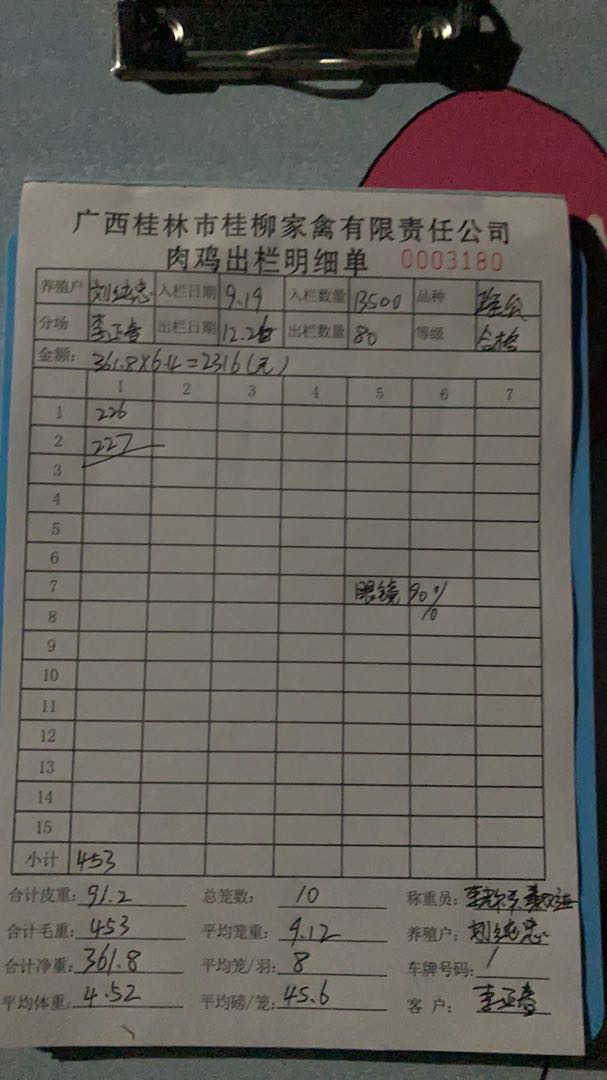 广西桂林市桂柳家禽有限责任公司
肉鸡出栏明细单 0003180
养殖户 刘纯忠 入栏日期 9.19 入栏数量 13500 品种
分场 李正春 出栏日期 12.26 出栏数量 80 等级 合格
金额: 361.8×6.4=2316(元)
1 2 3 4 5 6 7
1 226
2 227
3
4
5
6
7 眼镜 90%
8
9
10
11
12
13
14
15
小计 453
合计皮重: 91.2 总笼数: 10 称重员:
合计毛重: 453 平均笼重: 9.12 养殖户: 刘纯忠
合计净重: 361.8 平均笼/羽: 8 车牌号码: /
平均体重: 4.52 平均磅/笼: 45.6 客户: 李正春